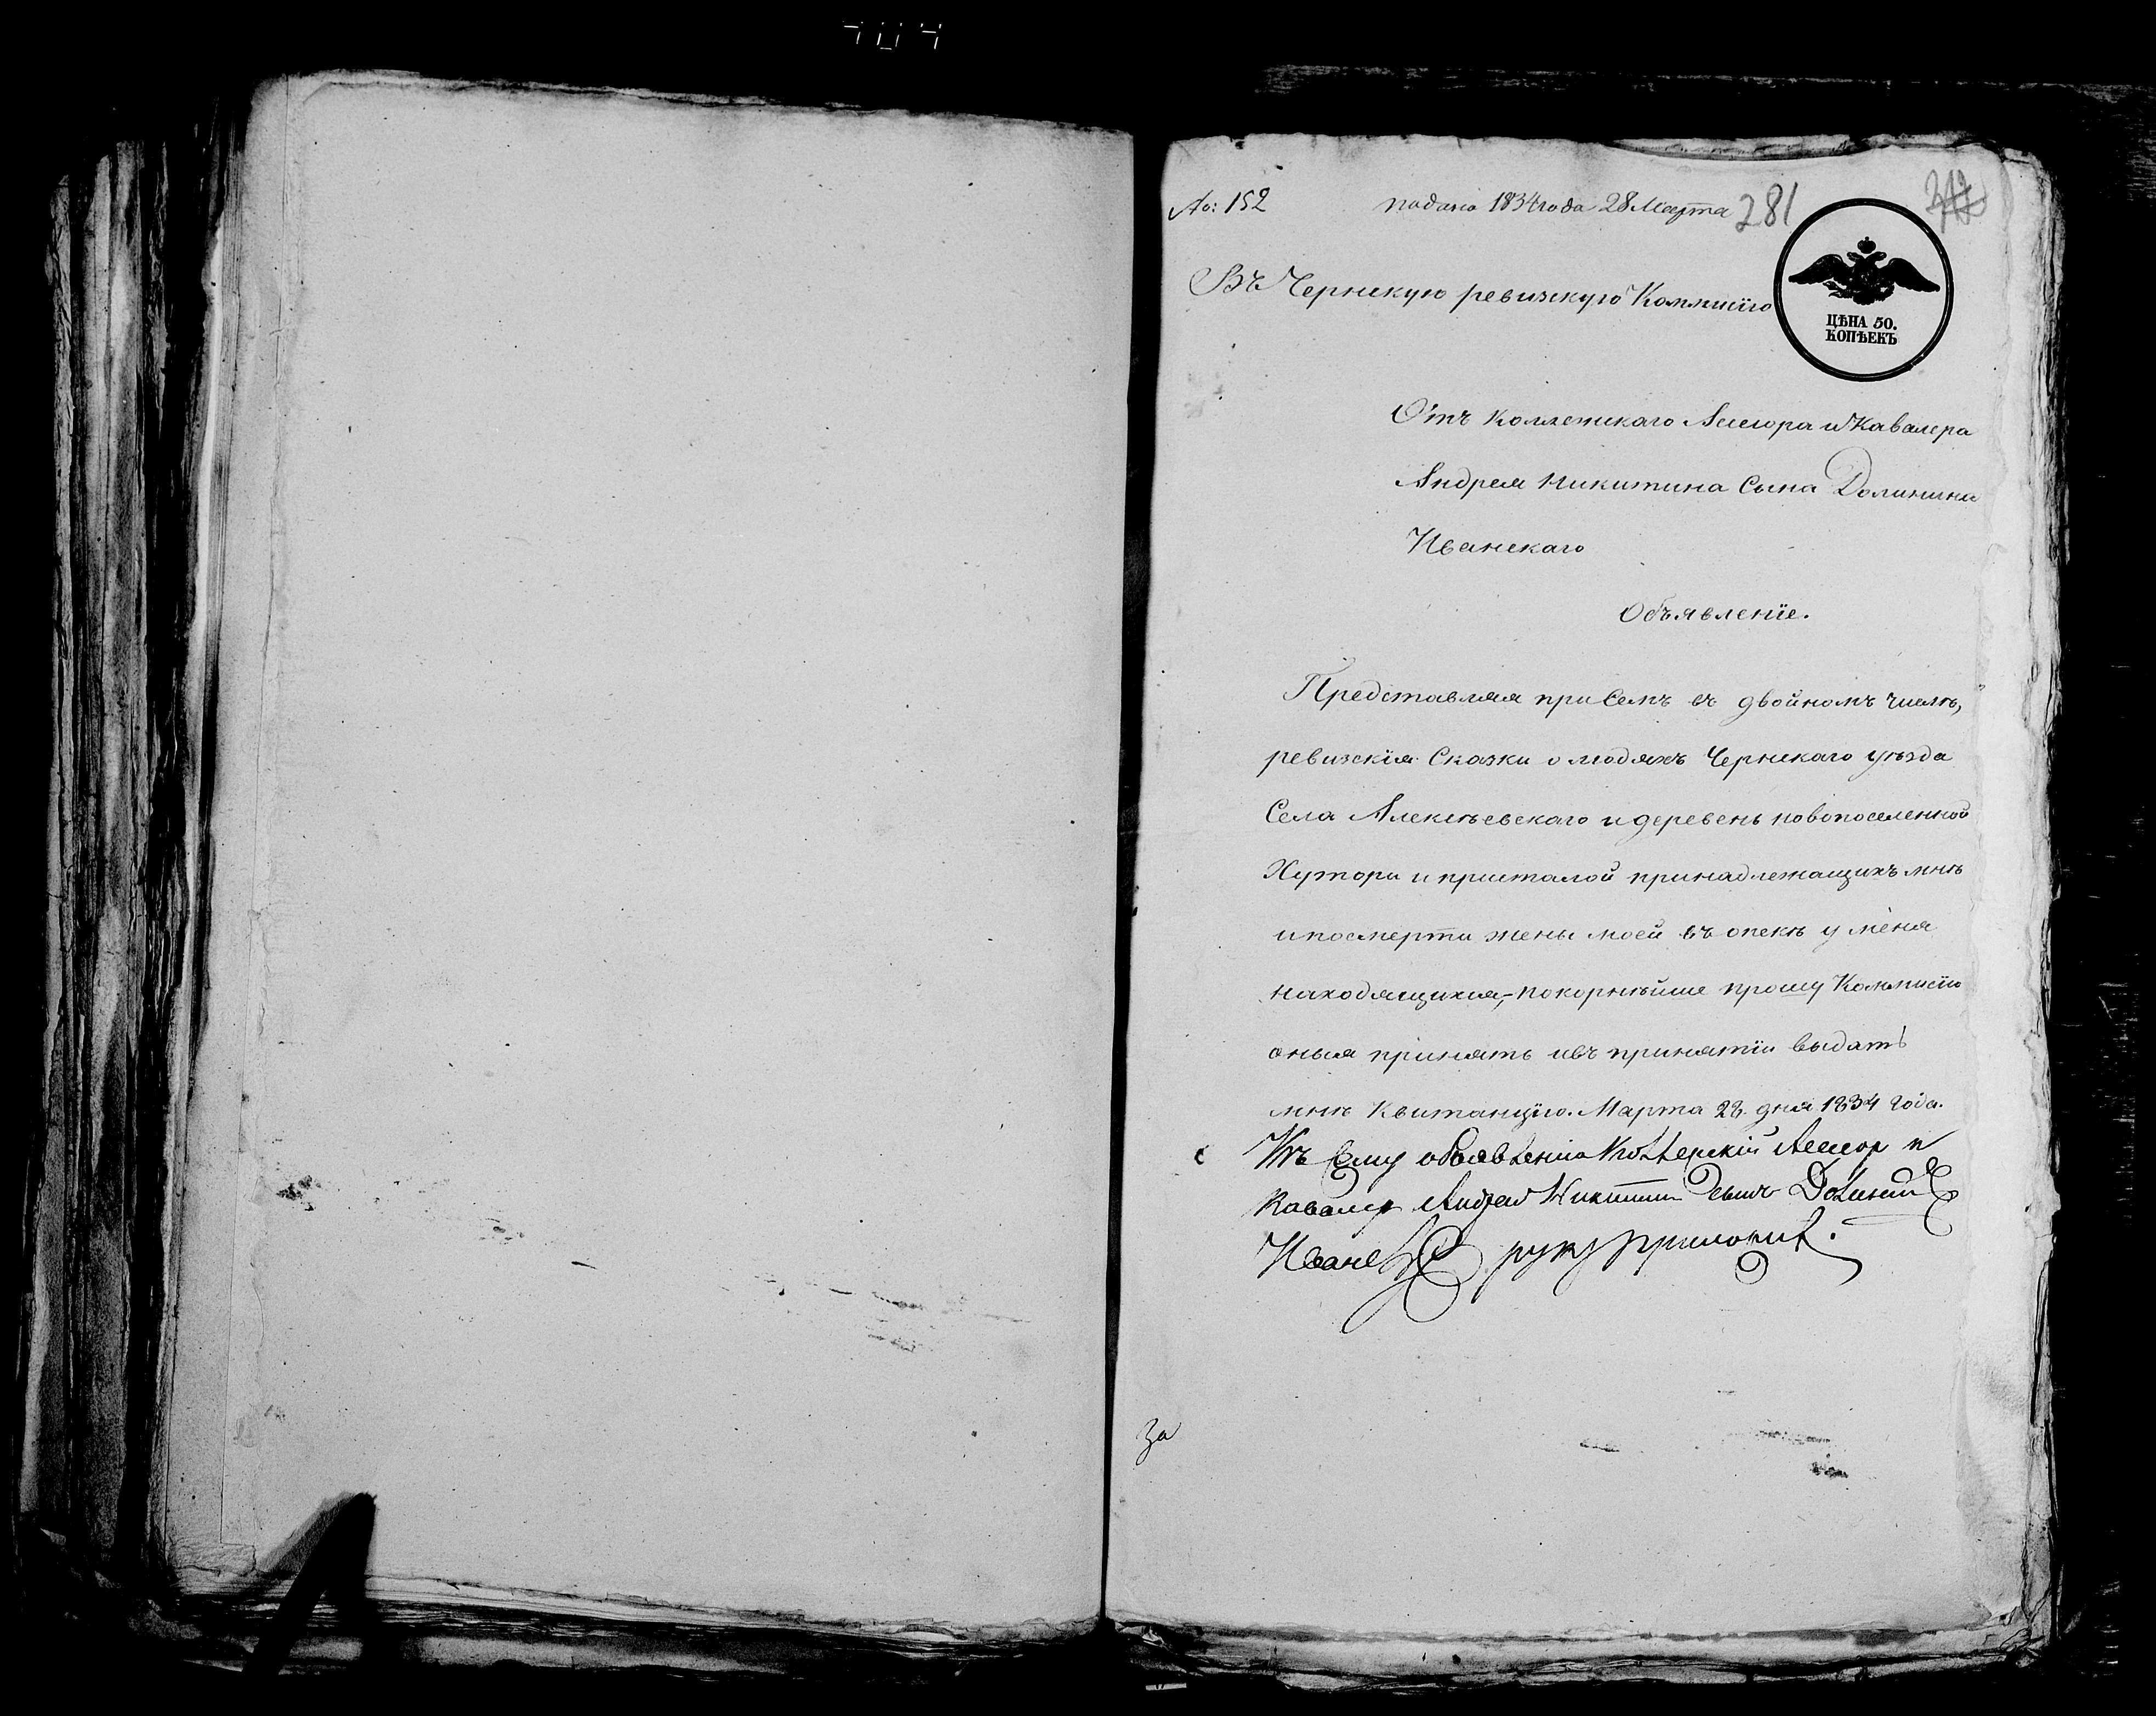 No: 152 подано 1834 года 28 Марта 281
Въ Чернскую ревизскую Коммисiю
ЦѢНА 50.
КОПѢЕКЪ
Отъ Коллежскаго Ассесора и Кавалера
Андрея Никитина Сына Долинина
Иванскаго
Объявленiе.
Представляя при семъ въ двойномъ числѣ,
ревизскiя Сказки о людяхъ Чернскаго уѣзда
Села Алексѣевскаго и деревень новопоселенной
Хутори и присталой принадлежащихъ мнѣ
и по смерти жены моей въ опекѣ у меня
находящихся,- покорнѣйше прошу Коммисiю
оныя принять и въ принятiи выдать
мнѣ Квитанцiю. Марта 28. дня 1834 Года.
Къ Сему объявленiю Коллежскiй Ассесор и
Кавалер Андрей Никитин Сынъ Долинин
Иванской руку приложил.
За